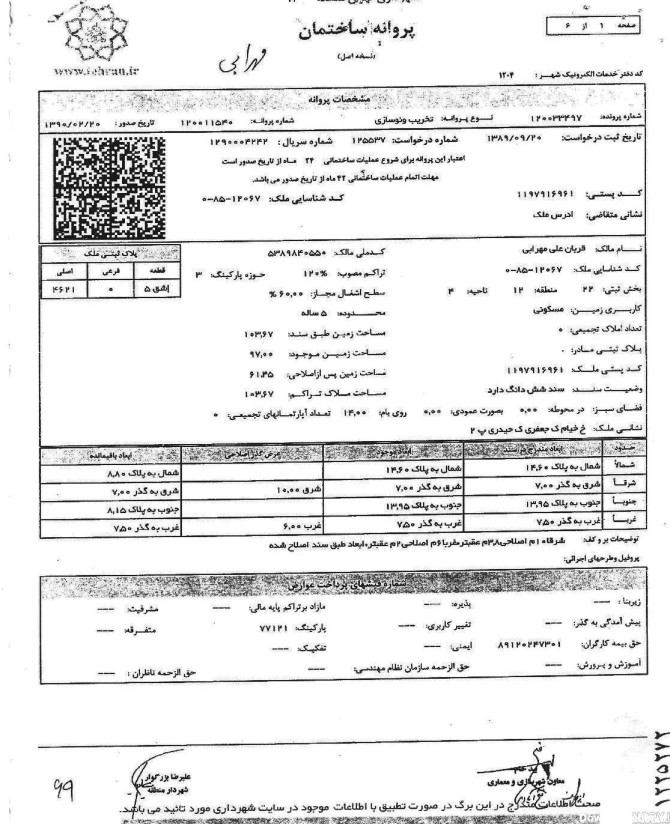 صفحه ۱ از ۶
پروانه ساختمان
(نسخه اصل)
مهرابی
www.tehran.ir
کد دفتر خدمات الکترونیک شهر : ۱۲۰۴
مشخصات پروانه
شماره پرونده: ۱۲۰۰۳۳۴۹۷ نوع پروانه: تخریب ونوسازی شماره پروانه: ۱۲۰۰۱۱۵۴۰ تاریخ صدور : ۱۳۹۰/۰۲/۲۰
تاریخ ثبت درخواست: ۱۳۸۹/۰۹/۲۰ شماره درخواست: ۱۲۵۵۳۷ شماره سریال: ۱۲۹۰۰۰۴۲۴۲
اعتبار این پروانه برای شروع عملیات ساختمانی ۲۴ ماه از تاریخ صدور است
مهلت اتمام عملیات ساختمانی ۴۲ ماه از تاریخ صدور می باشد.
کد پستی: ۱۱۹۷۹۱۶۹۶۱ کد شناسایی ملک: ۱۲۰۶۷-۸۵-۰
نشانی متقاضی: آدرس ملک
نام مالک: قربان علی مهرابی کدملی مالک: ۵۳۸۹۸۴۰۵۵۰ پلاک ثبتی ملک
کد شناسایی ملک: ۱۲۰۶۷-۸۵-۰ تراکم مصوب: ۱۲۰% حوزه پارکینگ: ۳ قطعه فرعی اصلی
بخش ثبتی: ۲۲ منطقه: ۱۲ ناحیه: ۴ سطح اشغال مجاز: ۶۰,۰۰ % ۵ ۰ ۴۶۲۱
کاربری زمین: مسکونی محدوده: ۵ ساله
تعداد املاک تجمیعی: ۰ مساحت زمین طبق سند: ۱۰۳,۶۷
پلاک ثبتی مادر: ۰ مساحت زمین موجود: ۹۷,۰۰
کد پستی ملک: ۱۱۹۷۹۱۶۹۶۱ مساحت زمین پس ازاصلاحی: ۶۱,۴۵
وضعیت سند: سند شش دانگ دارد مساحت ملاک تراکم: ۱۰۳,۶۷
فضای سبز: در محوطه: ۰,۰۰ بصورت عمودی: ۰,۰۰ روی بام: ۱۴,۰۰ تعداد آپارتمانهای تجمیعی: ۰
نشانی ملک: خ خیام ک جعفری ک حیدری پ ۲
ابعاد مندرج در سند ابعاد موجود عرض گذر اصلاحی ابعاد باقیمانده
شمالاً شمال به پلاک ۱۴,۶۰ شمال به پلاک ۱۴,۶۰ شمال به پلاک ۸,۸۰
شرقاً شرق به گذر ۷,۰۰ شرق به گذر ۷,۰۰ شرق ۱۰,۰۰ شرق به گذر ۷,۰۰
جنوباً جنوب به پلاک ۱۳,۹۵ جنوب به پلاک ۱۳,۹۵ جنوب به پلاک ۸,۱۵
غرباً غرب به گذر ۷,۵۰ غرب به گذر ۷,۵۰ غرب ۶,۰۰ غرب به گذر ۷,۵۰
توضیحات بر و کف: شرقا۱۰م اصلاحی۳,۸م عقبتر،غربا۶م اصلاحی۲م عقبتر،ابعاد طبق سند اصلاح شده
پروفیل وطرحهای اجرائی:
شماره فیشهای پرداخت عوارض
زیربنا : --- پذیره: --- مازاد برتراکم پایه مالی: --- مشرفیت: ---
پیش آمدگی به گذر: --- تغییر کاربری: --- پارکینگ: ۷۷۱۲۱ متفرقه: ---
حق بیمه کارگران: ۸۹۱۲۰۲۴۷۳۰۱ ایمنی: --- تفکیک: ---
آموزش و پرورش: --- حق الزحمه سازمان نظام مهندسی: --- حق الزحمه ناظران : ---
معاون شهرسازی و معماری
علیرضا بزرگوار
شهردار منطقه
۹۹
صحت اطلاعات مندرج در این برگ در صورت تطبیق با اطلاعات موجود در سایت شهرداری مورد تائید می باشد.